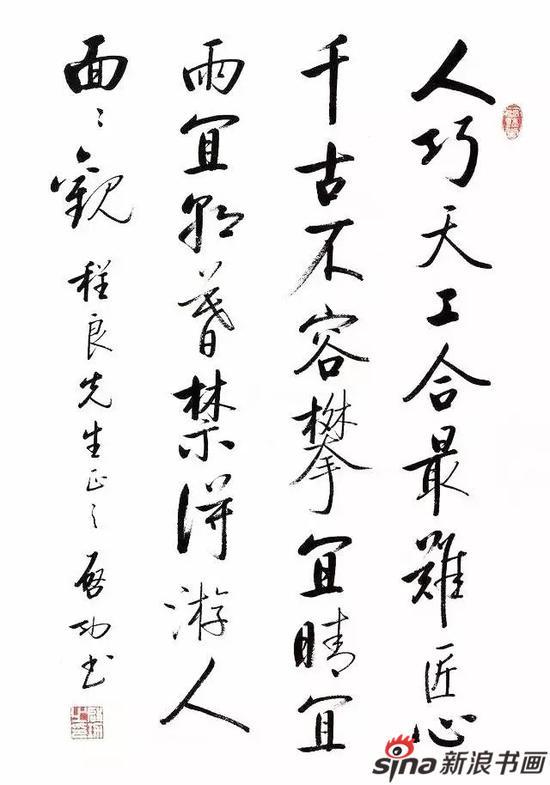 人巧天工合最難匠心
千古不容攀宜晴宜
雨宜朝暮禁得游人
面〻觀 程良先生正之 啓功書
sina新浪书画